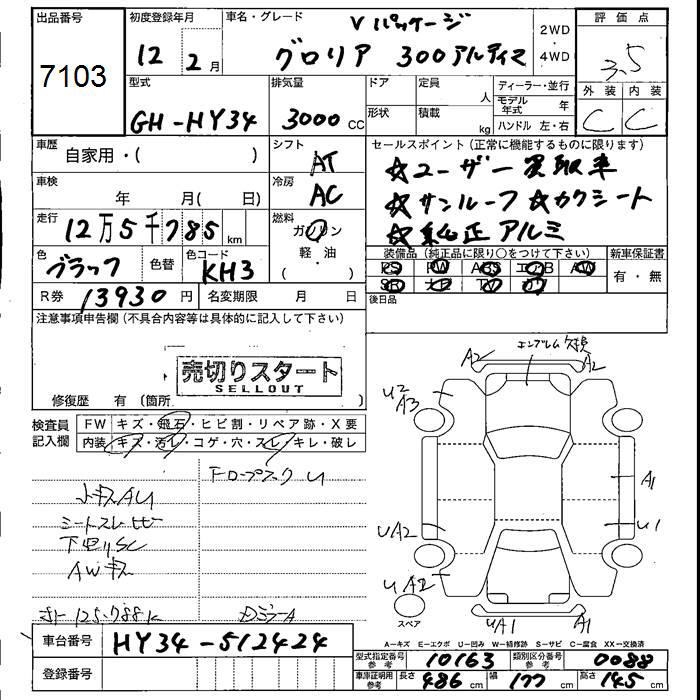 出品番号
7103
初度登録年月
12 2月
車名・グレード
Vパッケージ
グロリア 300アルティマ
2WD
・
4WD
評価点
3.5
外装 内装
C C
型式
GH-HY34
排気量
3000cc
ドア
形状
定員
人
積載
kg
ディーラー・並行
モデル年式 年
ハンドル 左・右
車歴
自家用・( )
シフト
AT
セールスポイント(正常に機能するものに限ります)
☆ユーザー買取車
☆サンルーフ ☆カワシート
☆純正アルミ
車検
年 月( 日)
冷房
AC
走行
12万5千785km
燃料
ガソリン
軽・油
( )
色
ブラック
色替
色コード
KH3
装備品(純正品に限り〇をつけて下さい)
PS PW ABS エアB AW
SR ナビ TV カワ
新車保証書
有・無
R券 13930円
名変期限 月 日
後日品
注意事項申告欄(不具合内容等は具体的に記入して下さい)
売切りスタート
SELLOUT
修復歴 有(箇所 )
エンブレム欠損
A2 A2
U2
A3
検査員記入欄
FW キズ・飛石・ヒビ割・リペア跡・X要
内装 キズ・汚レ・コゲ・穴・スレ・キレ・破レ
A1
UA2 U1
UA2
AWキズ
スペア
UA1 A1
A-キズ E-エクボ U-凹み W-補修跡 S-サビ C-腐食 XX-交換済
車台番号 HY34-512424
登録番号
型式指定番号 参考 10163 類別区分番号 参考 0088
車庫証明用 参考 長さ 486cm 幅 177cm 高さ 145cm